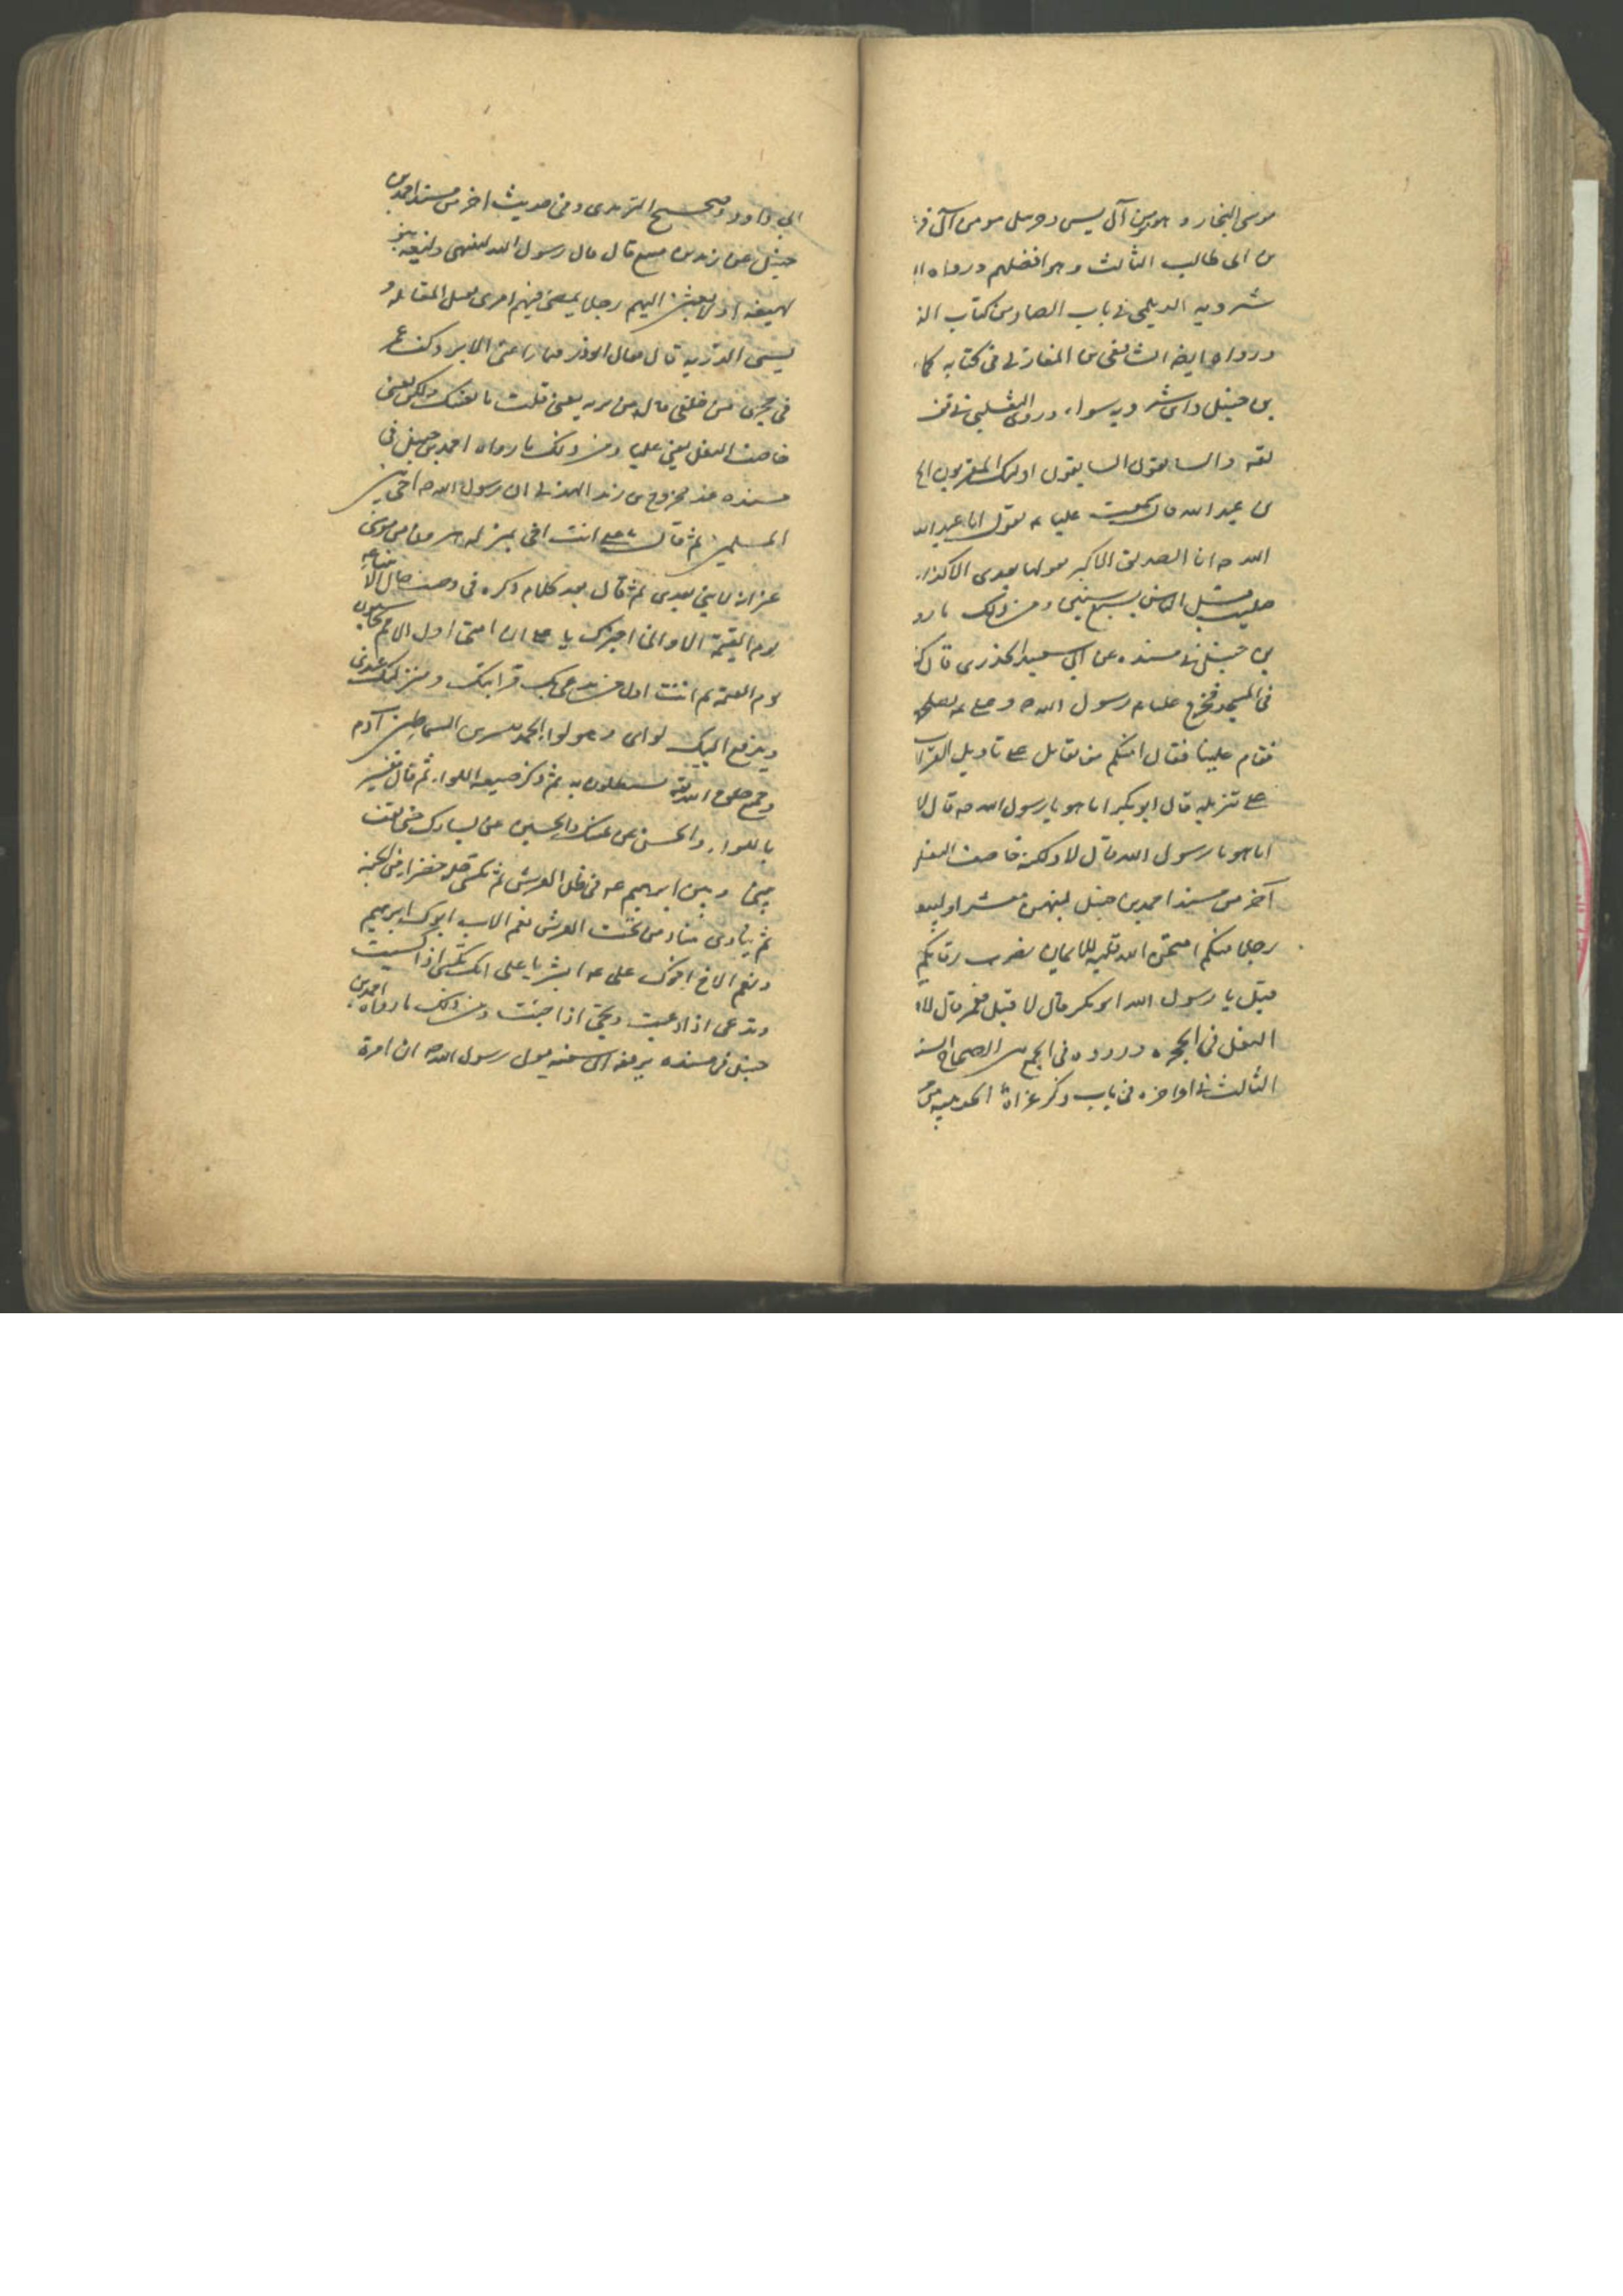 موسى النجار و هو من آل يس و حزقيل مومن آل فر
بن ابى طالب الثالث و هو افضلهم و رواه ا
شيرويه الديلمى فى باب الصاد من كتاب الفر
و رواه ايضا الشافعى بن المغازلى فى كتابه كما
بن حنبل و ابن شيرويه سواء و روى الثعلبى فى تف
لقه و السابقون السابقون اولئك المقربون الى
بن عبد الله قال سمعت عليا عه يقول انا عبد الله
الله صه انا الصديق الاكبر لا يقولها بعدى الا كذاب
صليت قبل الناس بسبع سنين و من ذلك ما رو
بن حنبل فى مسنده عن ابى سعيد الخدرى قال كنا
فى المسجد فخرج علينا رسول الله صه و على عه
فقام علينا فقال امنكم من يقاتل على تاويل القرآن
على تنزيله قال ابو بكر انا هو يا رسول الله صه قال لا
انا هو يا رسول الله قال لا و لكنه خاصف النعل
آخر من مسند احمد بن حنبل لتنتهن معشر او ليبع
رجلا منكم امتحن الله قلبه للايمان يضرب رقابكم
قيل يا رسول الله ابو بكر قال لا قيل فعمر قال لا و
النعل فى الحجرة و رووه فى الجمع بين الصحاح الست
الثالث فى اواخره فى باب ذكر غزاة الحديبية من
ابى داود و صحيح الترمدى و فى حديث اخر من مسند احمد بن
حنبل عن زيد بن قال قال رسول الله لتنتهى وليعه بنو
او لابعثن اليهم رجلا يمضى فيهم امرى يقتل المقاتله و
يسبى الذريه قال فقال ابو ذر فما راعنى الا برد كف عمر
فى حجزى من خلفى قال من تريه يعنى قلت ما يعنيك و لكن يعنى
خاصف النعل يعنى عليا و من ذلك ما رواه احمد بن حنبل فى
مسنده عند مخزوج بن زيد الهذلى ان رسول الله صه اخى بين
المسلمين ثم قال يا على انت اخى بمنزله هرون من موسى
غير انه لا نبى بعدى ثم قال بعد كلام ذكره فى وصف حال الانبياء
يوم القيمة الا و انى اخبرك يا على ان امتى اول الامم يحاسبون
يوم القيمة ثم انت اول من يدعى بك قرابتك و منزلتك عندى
و يدفع اليك لوائى و هو لواء الحمد السماطين آدم
و جميع خلق الله يستظلون به ثم ذكر صفه اللواء ثم قال فتسير
باللواء و الحسن عن يمينك و الحسين عن يسارك حتى تقف
بينى و بين ابرهيم عه فى ظل العرش ثم تكسى حله خضراء من الجنة
ثم ينادى مناد من تحت العرش نعم الاب ابوك ابرهيم
و نعم الاخ اخوك على عه ابشر يا على انك تكسى اذا كسيت
و تدعى اذا دعيت و تحيى اذا حييت و من ذلك ما رواه احمد بن
حنبل فى مسنده يرفعه الى يقول رسول الله صه ان امرة